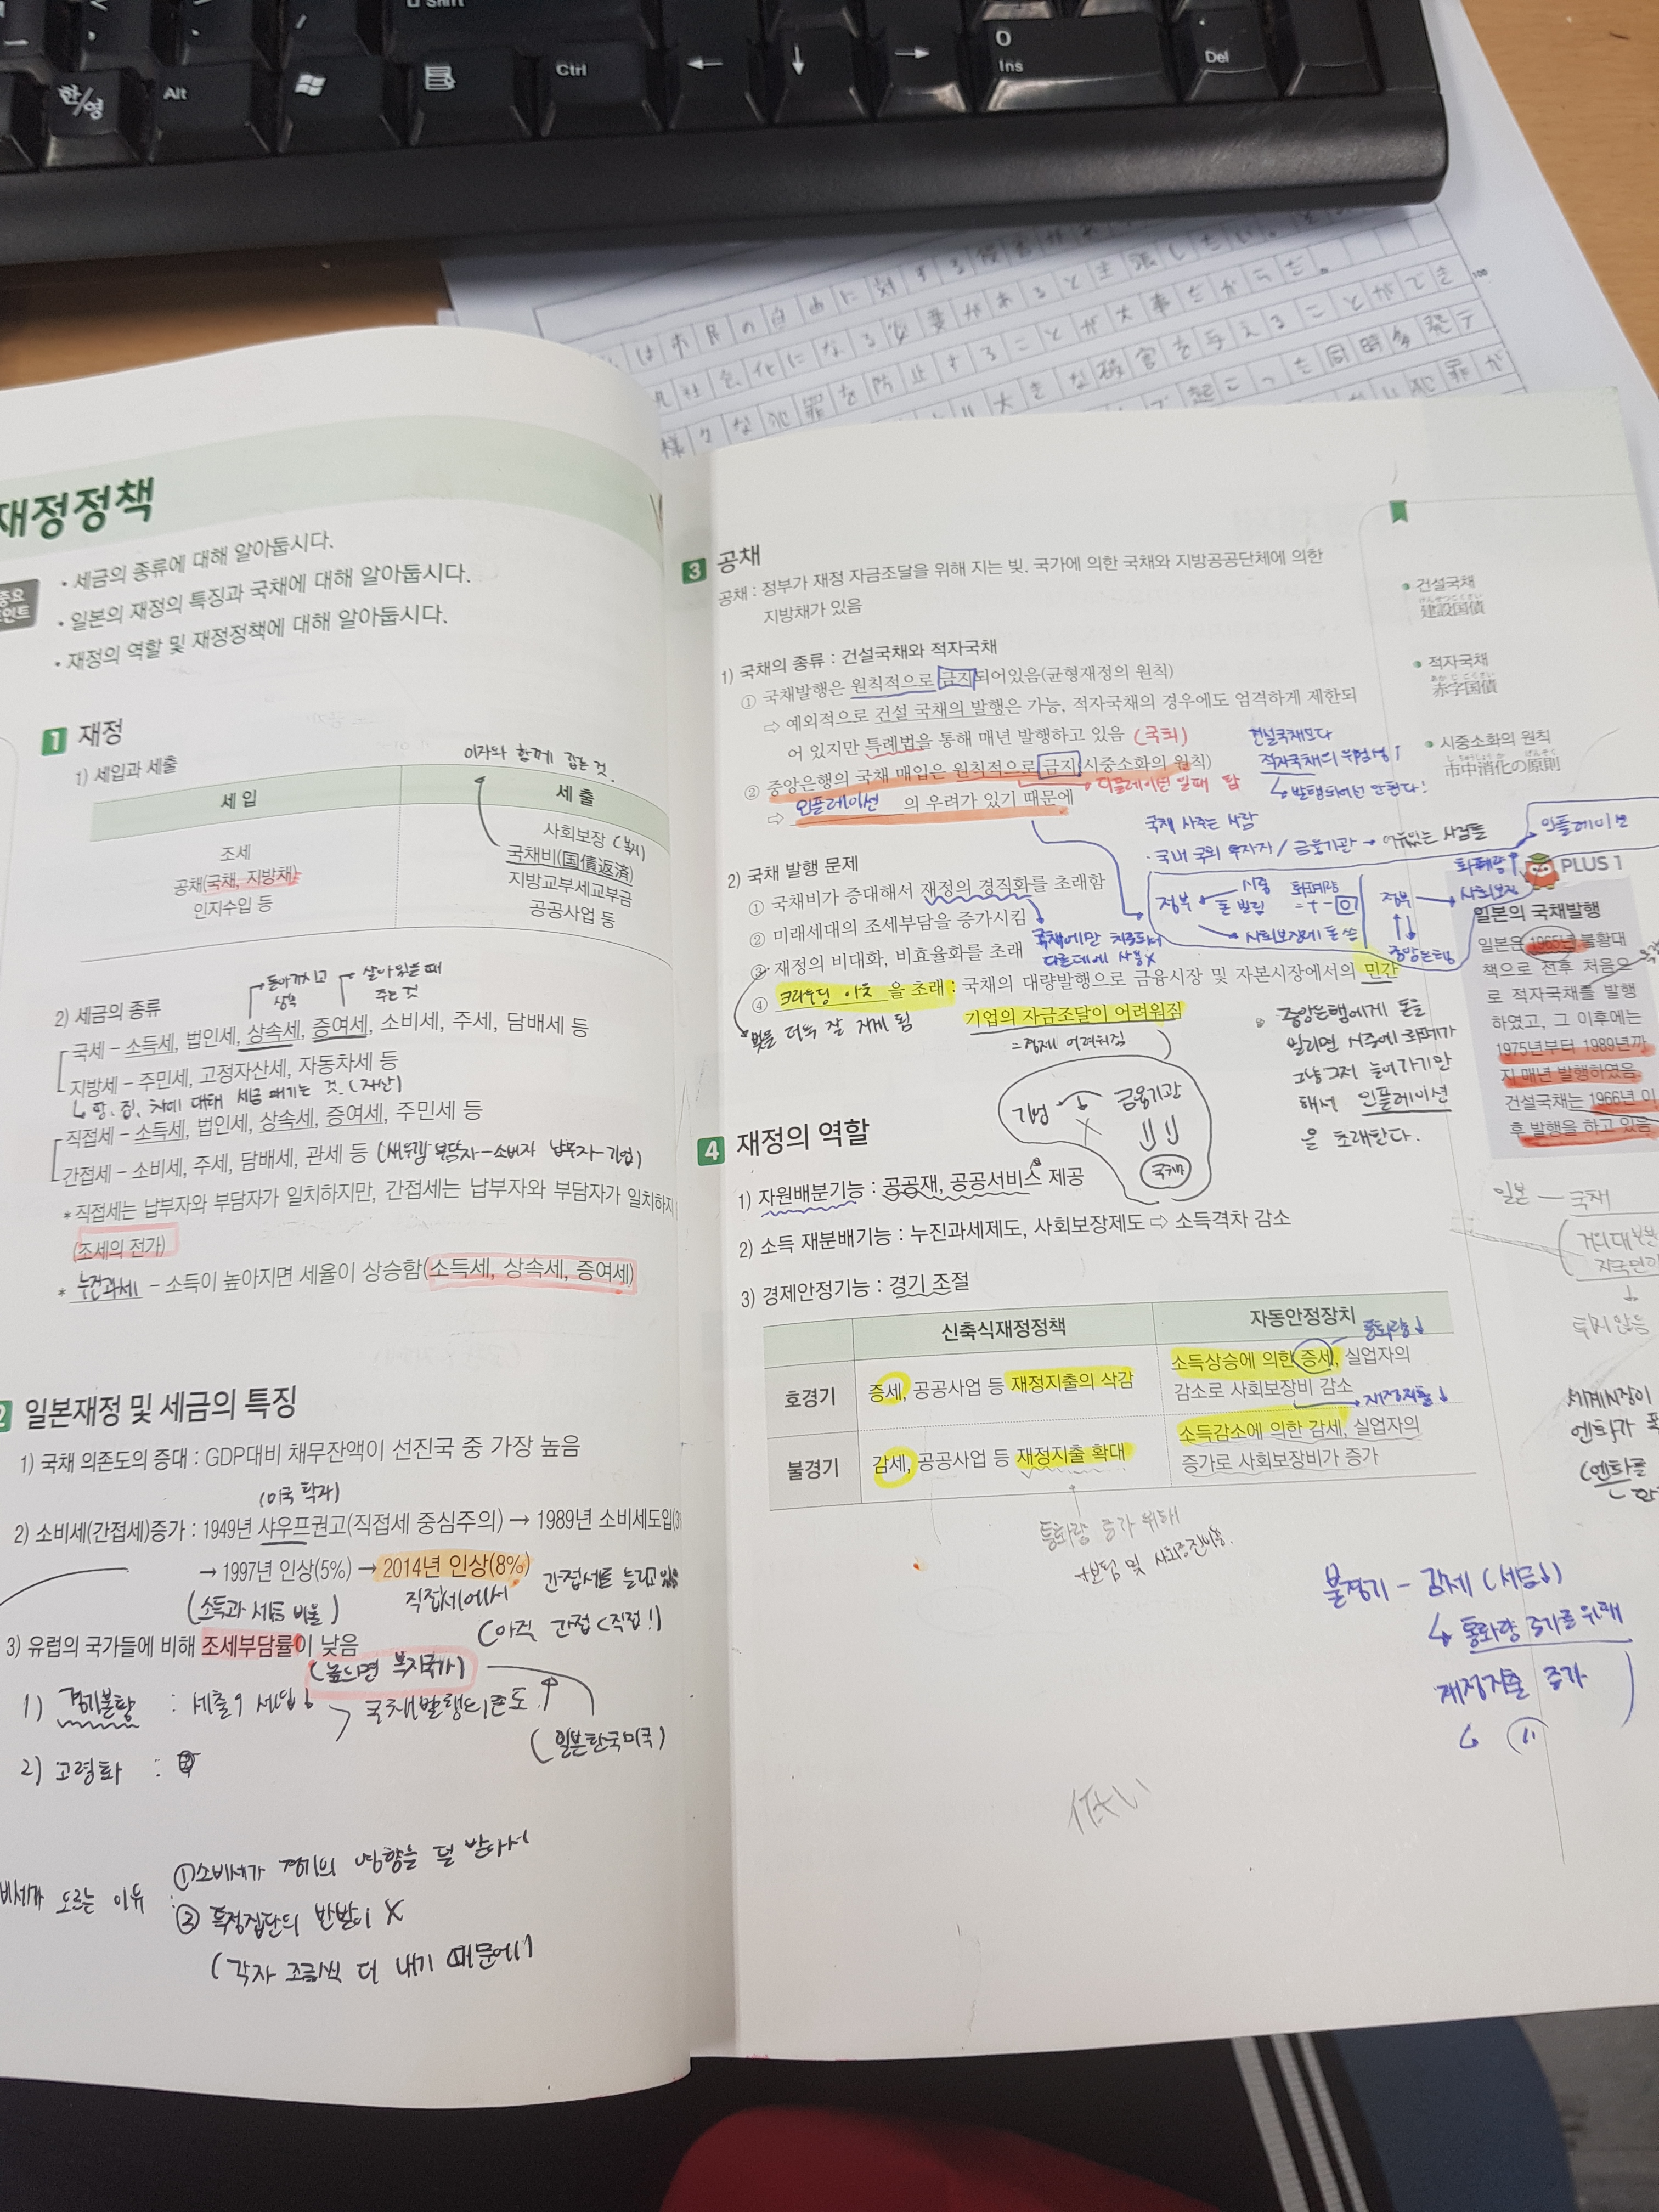 Shift
한/영
Alt
Ctrl
0
Ins
Del
재정정책
• 세금의 종류에 대해 알아둡시다.
• 일본의 재정의 특징과 국채에 대해 알아둡시다.
• 재정의 역할 및 재정정책에 대해 알아둡시다.
1 재정
1) 세입과 세출
이자와 함께 갚는 것.
세 입
세 출
조세
공채(국채, 지방채)
인지수입 등
사회보장
국채비(国債返済)
지방교부세교부금
공공사업 등
돌아가시고 상속
살아있을 때 주는 것
2) 세금의 종류
국세 – 소득세, 법인세, 상속세, 증여세, 소비세, 주세, 담배세 등
지방세 – 주민세, 고정자산세, 자동차세 등
↳ 땅, 집, 차에 대해 세금 매기는 것. (자산)
직접세 – 소득세, 법인세, 상속세, 증여세, 주민세 등
간접세 – 소비세, 주세, 담배세, 관세 등 (새우깡 부담자-소비자 납부자-기업)
* 직접세는 납부자와 부담자가 일치하지만, 간접세는 납부자와 부담자가 일치하지
(조세의 전가)
* 누진과세 – 소득이 높아지면 세율이 상승함(소득세, 상속세, 증여세)
2 일본재정 및 세금의 특징
1) 국채 의존도의 증대 : GDP대비 채무잔액이 선진국 중 가장 높음
(미국 학자)
2) 소비세(간접세)증가 : 1949년 샤우프권고(직접세 중심주의) → 1989년 소비세도입(3
→ 1997년 인상(5%) → 2014년 인상(8%)
직접세에서 간접세로 늘리고 있음
(소득과 세금 비율)
(아직 간접<직접!)
3) 유럽의 국가들에 비해 조세부담률이 낮음
(높으면 복지국가)
1) 경기불황 : 세출↑ 세입↓ 국채발행의존도↑
(일본한국미국)
2) 고령화 :
비세가 오르는 이유 : ① 소비세가 경기의 영향을 덜 받아서
② 특정집단의 반발이 X
(각자 조금씩 더 내기 때문에)
3 공채
공채 : 정부가 재정 자금조달을 위해 지는 빚. 국가에 의한 국채와 지방공공단체에 의한
지방채가 있음
1) 국채의 종류 : 건설국채와 적자국채
① 국채발행은 원칙적으로 금지되어있음(균형재정의 원칙)
⇨ 예외적으로 건설 국채의 발행은 가능, 적자국채의 경우에도 엄격하게 제한되
어 있지만 특례법을 통해 매년 발행하고 있음 (국회)
② 중앙은행의 국채 매입은 원칙적으로 금지(시중소화의 원칙)
⇨ 인플레이션 의 우려가 있기 때문에
건설국채보다
적자국채의 위험성↑
↳ 발행되어선 안된다!
국채 사주는 사람
2) 국채 발행 문제
① 국채비가 증대해서 재정의 경직화를 초래함
② 미래세대의 조세부담을 증가시킴
③ 재정의 비대화, 비효율화를 초래
④ 크라우딩 아웃 을 초래 : 국채의 대량발행으로 금융시장 및 자본시장에서의 민간
기업의 자금조달이 어려워짐
=경제 어려워짐
정부
시중
돈 빌림
사회보장에 돈 씀
정부
중앙은행
사회보장
화폐량↑
인플레이션
중앙은행에게 돈을
빌리면 시중에 화폐가
그냥그저 늘어나기만
해서 인플레이션
을 초래한다.
기업
금융기관
국채
4 재정의 역할
1) 자원배분기능 : 공공재, 공공서비스 제공
2) 소득 재분배기능 : 누진과세제도, 사회보장제도 ⇨ 소득격차 감소
3) 경제안정기능 : 경기 조절
신축식재정정책
자동안정장치
통화량↓
호경기
증세, 공공사업 등 재정지출의 삭감
소득상승에 의한 증세, 실업자의
감소로 사회보장비 감소
재정지출↓
불경기
감세, 공공사업 등 재정지출 확대
소득감소에 의한 감세, 실업자의
증가로 사회보장비가 증가
통화량 증가 위해
불경기 – 감세 (세금↓)
↳ 통화량 증가를 위해
재정지출 증가
低い
건설국채
けんせつこくさい
建設国債
적자국채
あかじこくさい
赤字国債
시중소화의 원칙
しちゅうしょうか げんそく
市中消化の原則
PLUS 1
일본의 국채발행
일본은 1965년 불황대
책으로 전후 처음으
로 적자국채를 발행
하였고, 그 이후에는
1975년부터 1989년까
지 매년 발행하였음
건설국채는 1966년 이
후 발행을 하고 있음
일본 – 국채